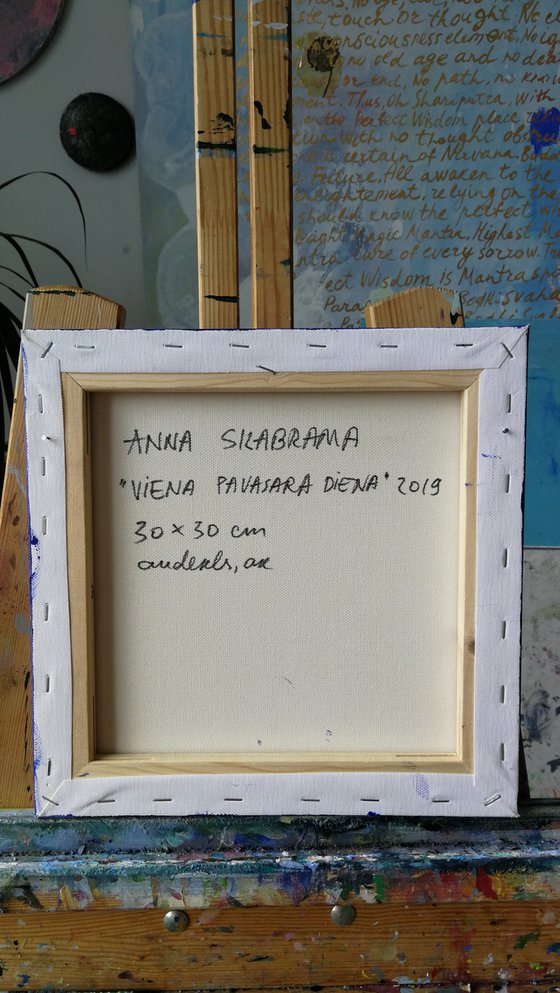 ste, touch or thought. No e
consciousness element, No ig
no old age and no dea
or end, No path, no know
ment. Thus, Oh Shariputra, With
on the Perfect Wisdom place
With no thought obstru
is certain of Nirvana.
Future, All awaken to the
enlightement, relying on th
should know the perfect w
Bright Magic Mantra, Highest Ma
ntra cure of every sorrow. Tr
ect Wisdom is Mantra sp
Para Bodhi Svaha
ANNA SKABRAMA
"VIENA PAVASARA DIENA" 2019
30 x 30 cm
audekls, ak